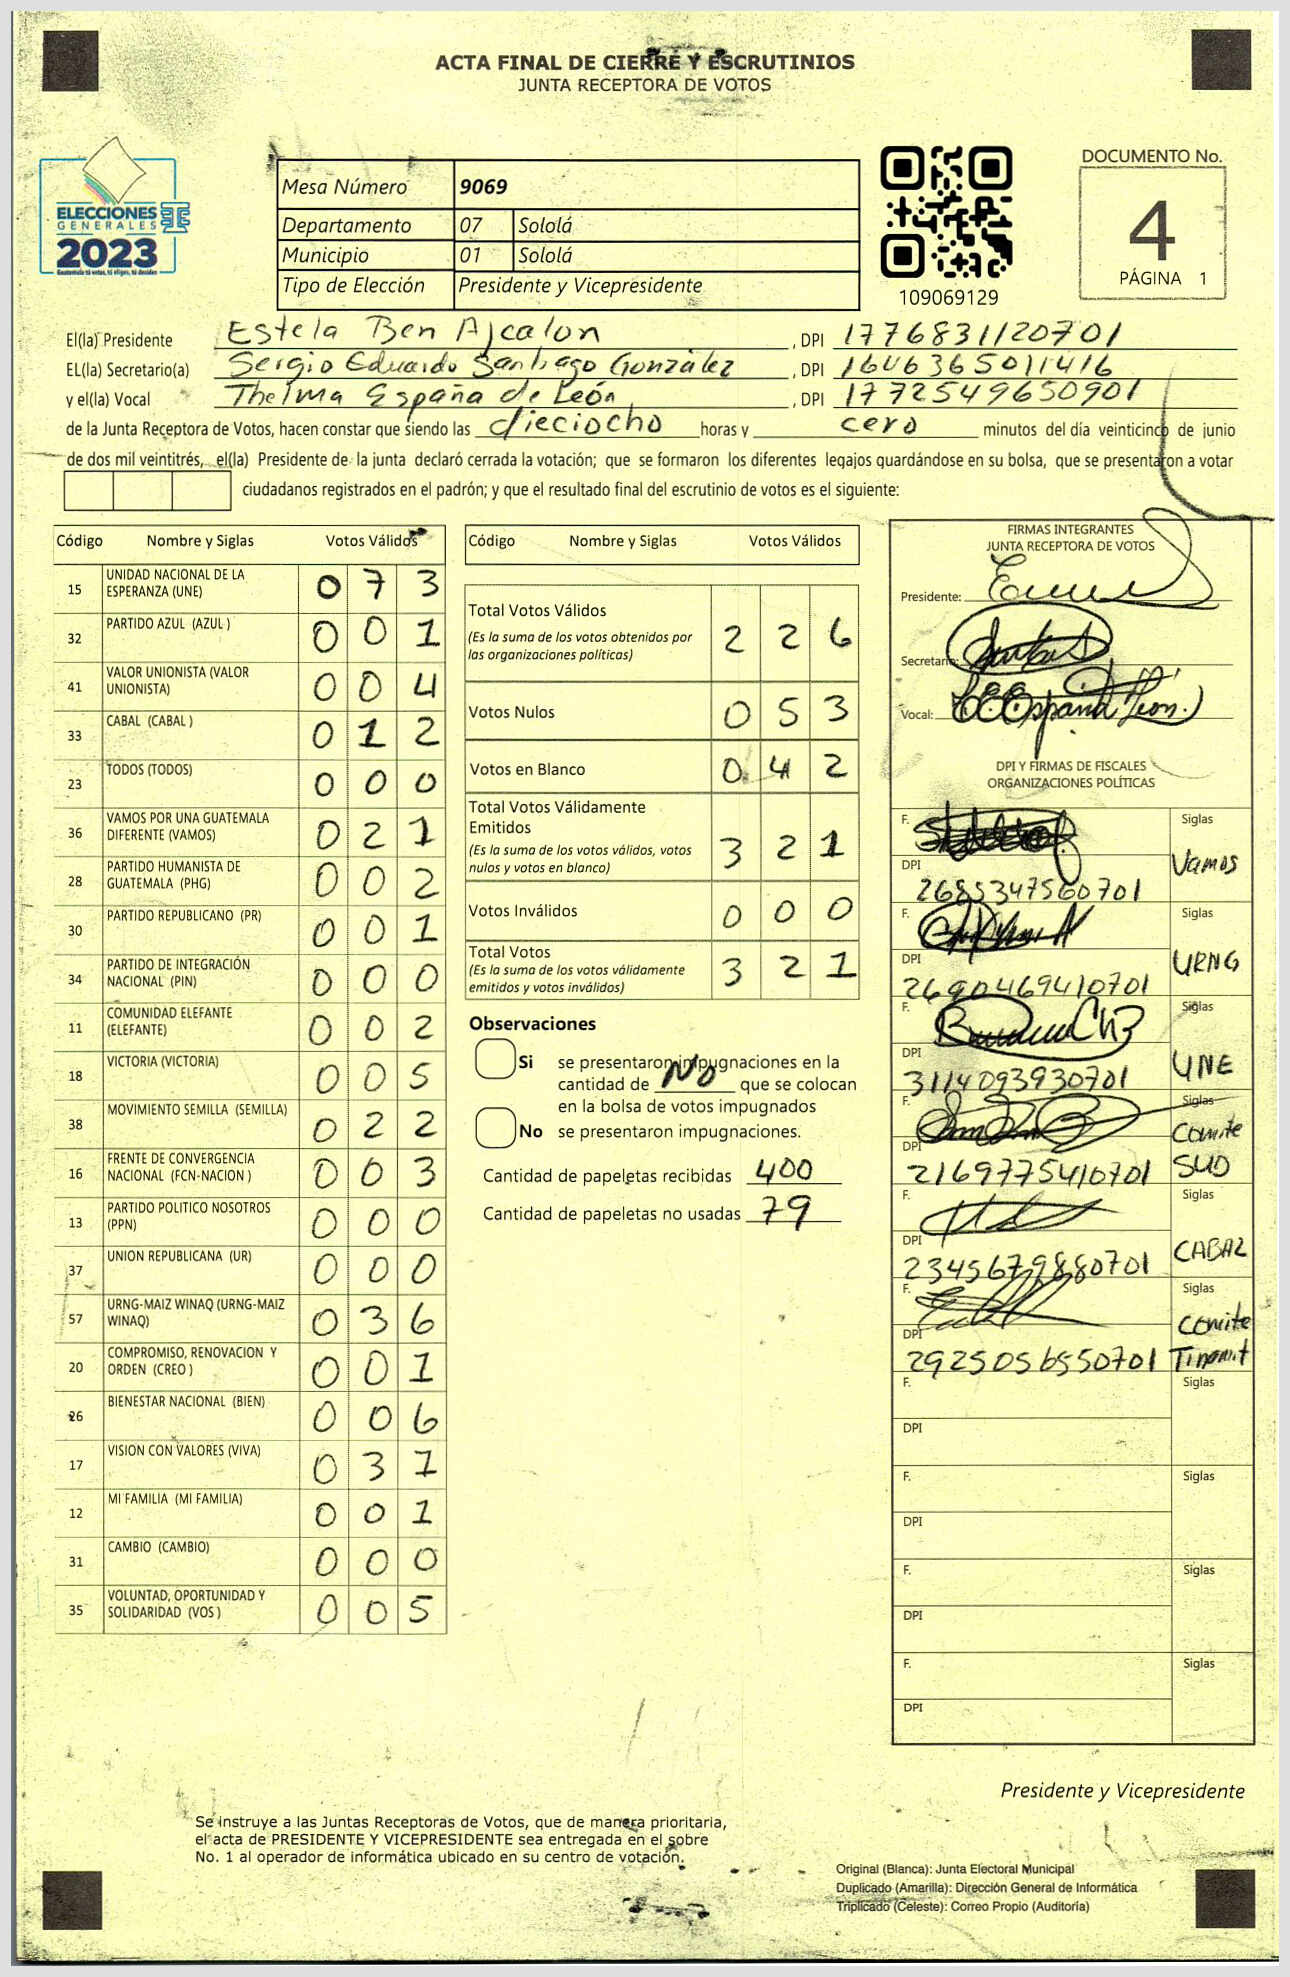 ACTA FINAL DE CIERRE Y ESCRUTINIOS
JUNTA RECEPTORA DE VOTOS
ELECCIONES
GENERALES
2023
Guatemala tú votas, tú eliges, tú decides
Mesa Número 9069
Departamento 07 Sololá
Municipio 01 Sololá
Tipo de Elección Presidente y Vicepresidente
109069129
DOCUMENTO No.
4
PÁGINA 1
El(la) Presidente Estela Ben Ajcalon, DPI 1776831120701
EL(la) Secretario(a) Sergio Eduardo Santiago González, DPI 1646365011416
y el(la) Vocal Thelma España de León, DPI 1772549650901
de la Junta Receptora de Votos, hacen constar que siendo las dieciocho horas y cero minutos del día veinticinco de junio
de dos mil veintitrés, el(la) Presidente de la junta declaró cerrada la votación; que se formaron los diferentes legajos guardándose en su bolsa, que se presentaron a votar
ciudadanos registrados en el padrón; y que el resultado final del escrutinio de votos es el siguiente:
Código Nombre y Siglas Votos Válidos
15 UNIDAD NACIONAL DE LA ESPERANZA (UNE) 0 7 3
32 PARTIDO AZUL (AZUL ) 0 0 1
41 VALOR UNIONISTA (VALOR UNIONISTA) 0 0 4
33 CABAL (CABAL ) 0 1 2
23 TODOS (TODOS) 0 0 0
36 VAMOS POR UNA GUATEMALA DIFERENTE (VAMOS) 0 2 1
28 PARTIDO HUMANISTA DE GUATEMALA (PHG) 0 0 2
30 PARTIDO REPUBLICANO (PR) 0 0 1
34 PARTIDO DE INTEGRACIÓN NACIONAL (PIN) 0 0 0
11 COMUNIDAD ELEFANTE (ELEFANTE) 0 0 2
18 VICTORIA (VICTORIA) 0 0 5
38 MOVIMIENTO SEMILLA (SEMILLA) 0 2 2
16 FRENTE DE CONVERGENCIA NACIONAL (FCN-NACION ) 0 0 3
13 PARTIDO POLITICO NOSOTROS (PPN) 0 0 0
37 UNION REPUBLICANA (UR) 0 0 0
57 URNG-MAIZ WINAQ (URNG-MAIZ WINAQ) 0 3 6
20 COMPROMISO, RENOVACION Y ORDEN (CREO ) 0 0 1
26 BIENESTAR NACIONAL (BIEN) 0 0 6
17 VISION CON VALORES (VIVA) 0 3 1
12 MI FAMILIA (MI FAMILIA) 0 0 1
31 CAMBIO (CAMBIO) 0 0 0
35 VOLUNTAD, OPORTUNIDAD Y SOLIDARIDAD (VOS ) 0 0 5
Código Nombre y Siglas Votos Válidos
Total Votos Válidos 2 2 6
(Es la suma de los votos obtenidos por
las organizaciones políticas)
Votos Nulos 0 5 3
Votos en Blanco 0 4 2
Total Votos Válidamente
Emitidos 3 2 1
(Es la suma de los votos válidos, votos
nulos y votos en blanco)
Votos Inválidos 0 0 0
Total Votos 3 2 1
(Es la suma de los votos válidamente
emitidos y votos inválidos)
Observaciones
Si se presentaron impugnaciones en la
cantidad de No que se colocan
en la bolsa de votos impugnados
No se presentaron impugnaciones.
Cantidad de papeletas recibidas 400
Cantidad de papeletas no usadas 79
FIRMAS INTEGRANTES
JUNTA RECEPTORA DE VOTOS
Presidente:
Secretario:
Vocal:
DPI Y FIRMAS DE FISCALES
ORGANIZACIONES POLÍTICAS
F. Siglas
Vamos
DPI
2685347560701
F. Siglas
URNG
DPI
2690469410701
F. Siglas
UNE
DPI
3114093930701
F. Siglas
Comite
SUD
DPI
2169775410701
F. Siglas
CABAL
DPI
2345679880701
F. Siglas
comite
DPI
2925056550701
F. Siglas
DPI
F. Siglas
DPI
F. Siglas
DPI
F. Siglas
DPI
Presidente y Vicepresidente
Se instruye a las Juntas Receptoras de Votos, que de manera prioritaria,
el acta de PRESIDENTE Y VICEPRESIDENTE sea entregada en el sobre
No. 1 al operador de informática ubicado en su centro de votación.
Original (Blanca): Junta Electoral Municipal
Duplicado (Amarilla): Dirección General de Informática
Triplicado (Celeste): Correo Propio (Auditoría)